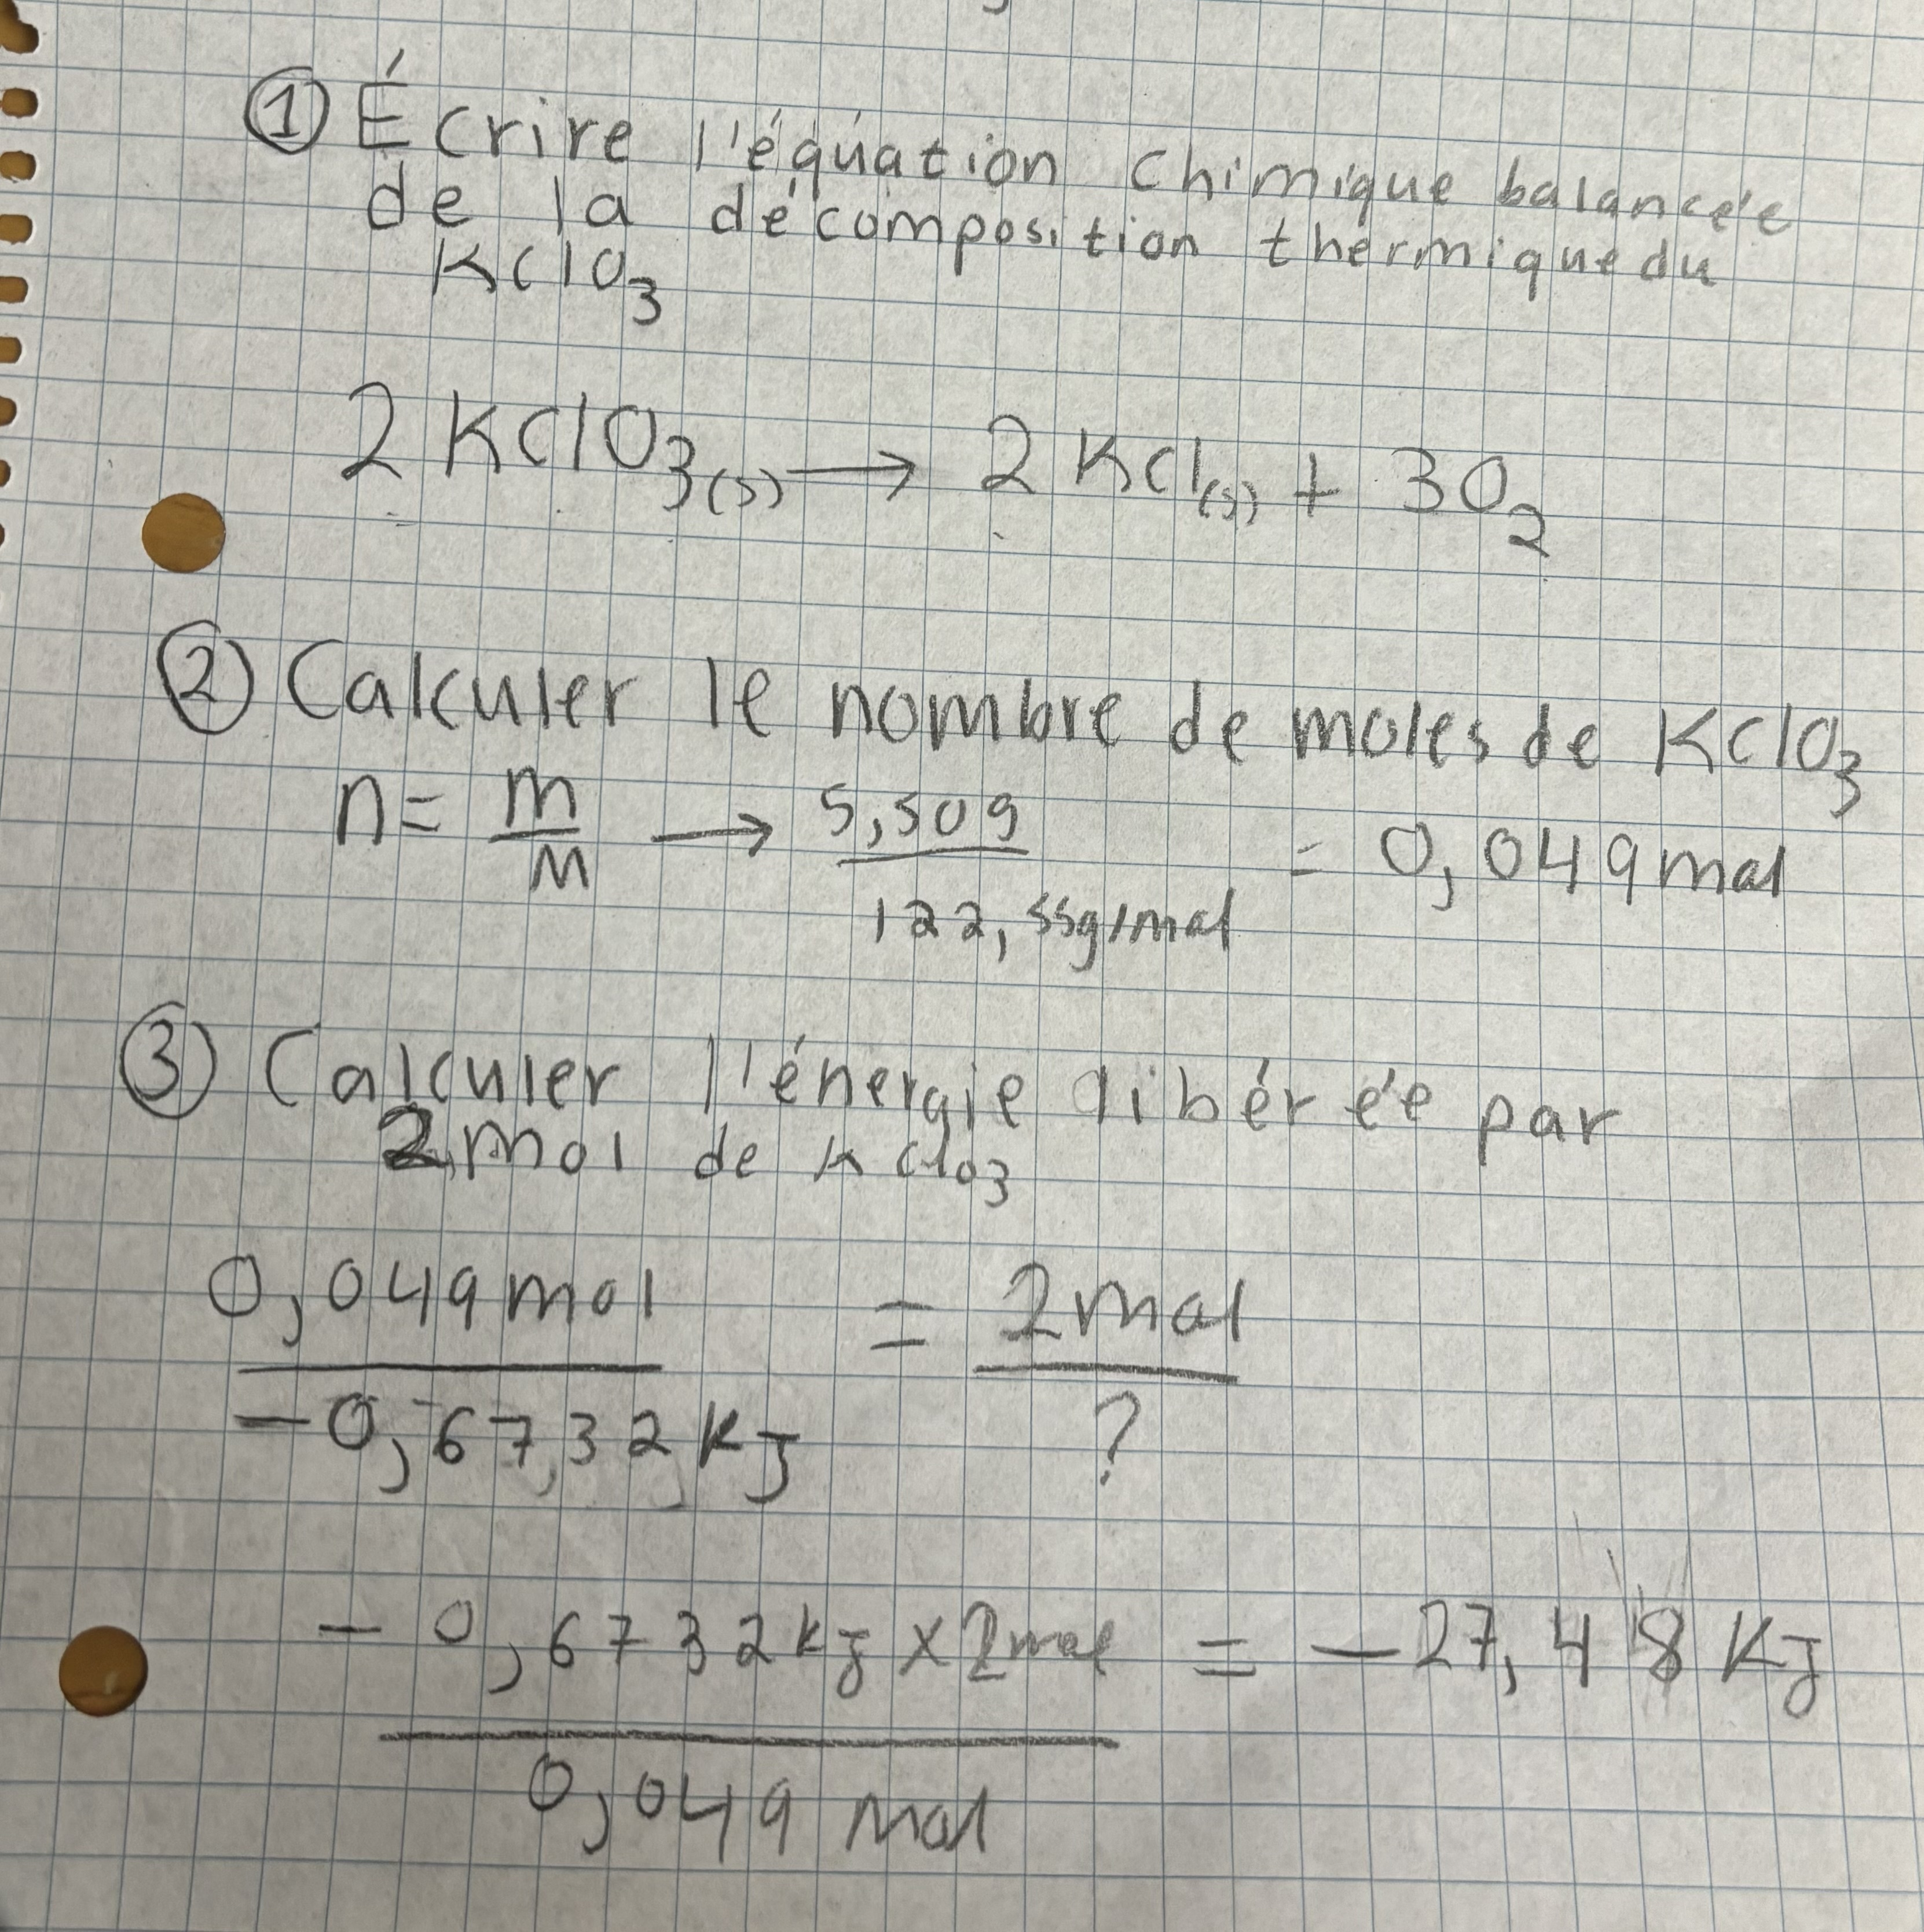 ① Écrire l'équation chimique balancée
de la décomposition thermique du
KClO3
2 KClO3(s) → 2 KCl(s) + 3O2
② Calculer le nombre de moles de KClO3
n = m/M → 5,50g / 122,55g/mol = 0,049 mol
③ Calculer l'énergie libérée par
2 mol de KClO3
0,049 mol / -0,6732 KJ = 2 mol / ?
-0,6732 kJ x 2 mol / 0,049 mol = -27,48 KJ